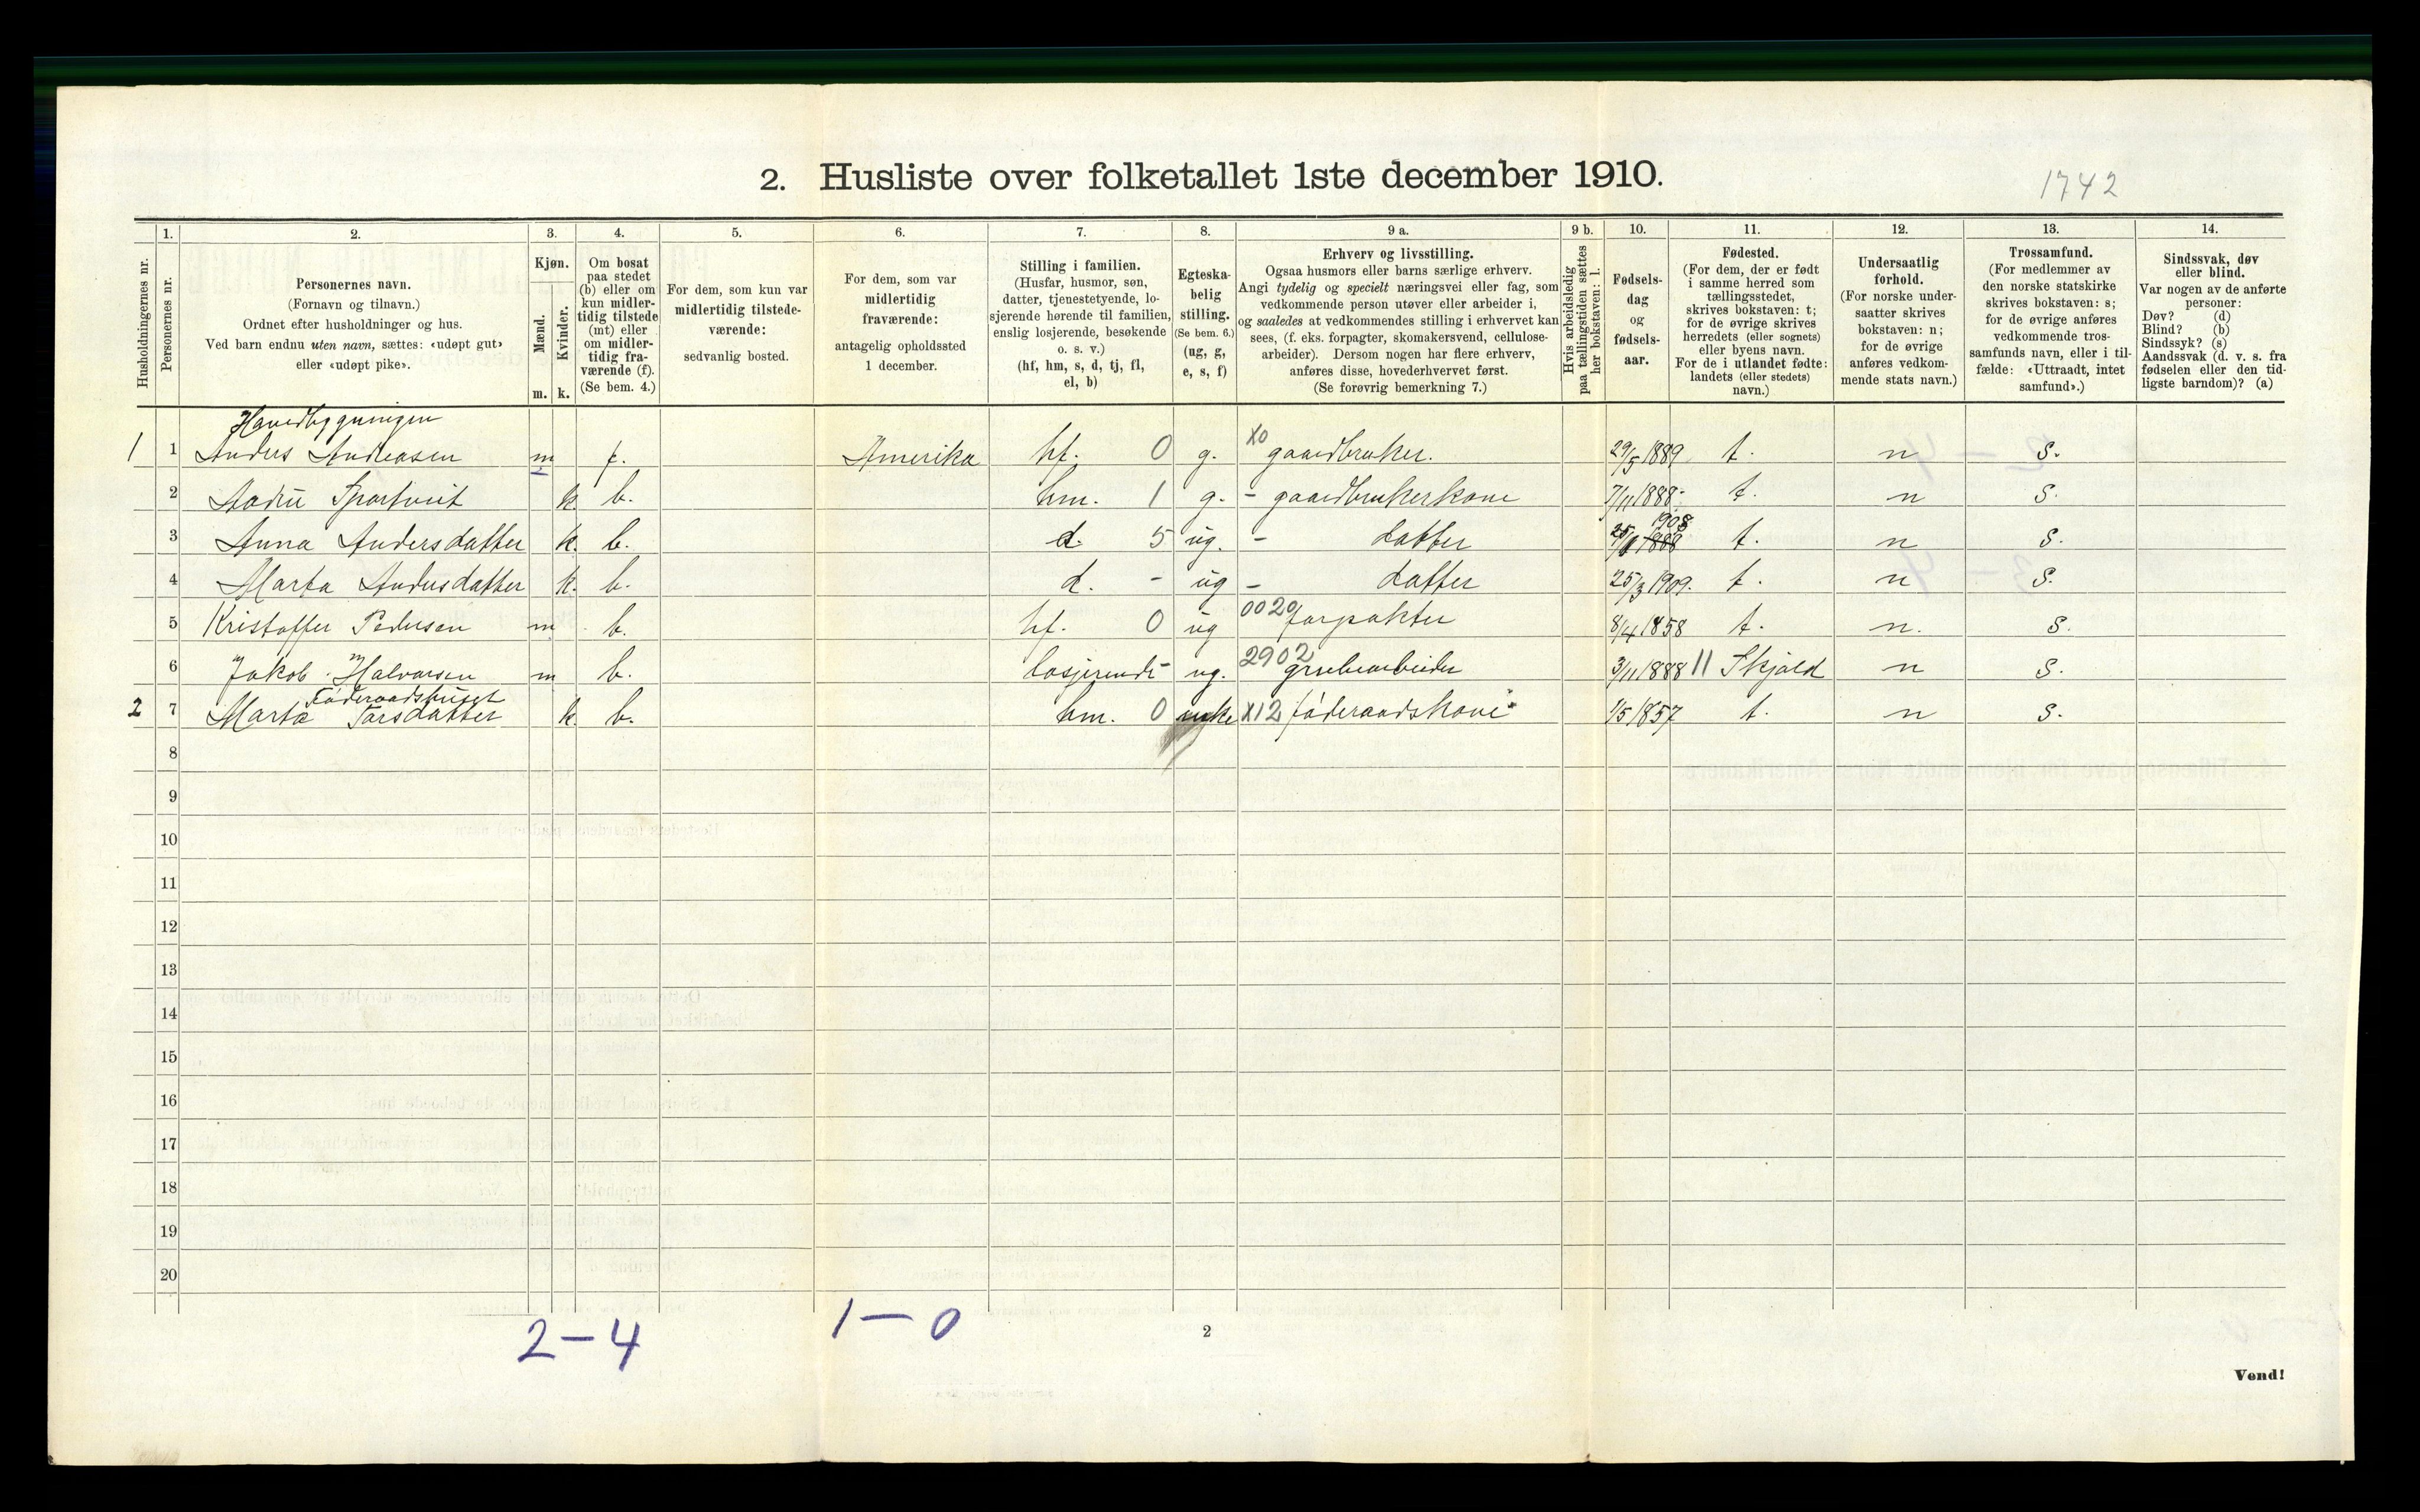 2. Husliste over folketallet 1ste december 1910.
1742
1. 2. 3. 4. 5. 6. 7. 8. 9 a. 9 b. 10. 11. 12. 13. 14.
Husholdningernes nr.
Personernes nr.
Personernes navn.
(Fornavn og tilnavn.)
Ordnet efter husholdninger og hus.
Ved barn endnu uten navn, sættes: «udøpt gut»
eller «udøpt pike».
Kjøn.
Mænd.
Kvinder.
m. k.
Om bosat
paa stedet
(b) eller om
kun midler-
tidig tilstede
(mt) eller
om midler-
tidig fra-
værende (f).
(Se bem. 4.)
For dem, som kun var
midlertidig tilstede-
værende:
sedvanlig bosted.
For dem, som var
midlertidig
fraværende:
antagelig opholdssted
1 december.
Stilling i familien.
(Husfar, husmor, søn,
datter, tjenestetyende, lo-
sjerende hørende til familien,
enslig losjerende, besøkende
o. s. v.)
(hf, hm, s, d, tj, fl,
el, b)
Egteska-
belig
stilling.
(Se bem. 6.)
(ug, g,
e, s, f)
Erhverv og livsstilling.
Ogsaa husmors eller barns særlige erhverv.
Angi tydelig og specielt næringsvei eller fag, som
vedkommende person utøver eller arbeider i,
og saaledes at vedkommendes stilling i erhvervet kan
sees, (f. eks. forpagter, skomakersvend, cellulose-
arbeider). Dersom nogen har flere erhverv,
anføres disse, hovederhvervet først.
(Se forøvrig bemerkning 7.)
Hvis arbeidsledig
paa tællingstiden sættes
her bokstaven: l.
Fødsels-
dag
og
fødsels-
aar.
Fødested.
(For dem, der er født
i samme herred som
tællingsstedet,
skrives bokstaven: t;
for de øvrige skrives
herredets (eller sognets)
eller byens navn.
For de i utlandet fødte:
landets (eller stedets)
navn.)
Undersaatlig
forhold.
(For norske under-
saatter skrives
bokstaven: n;
for de øvrige
anføres vedkom-
mende stats navn.)
Trossamfund.
(For medlemmer av
den norske statskirke
skrives bokstaven: s;
for de øvrige anføres
vedkommende tros-
samfunds navn, eller i til-
fælde: «Uttraadt, intet
samfund».)
Sindssvak, døv
eller blind.
Var nogen av de anførte
personer:
Døv? (d)
Blind? (b)
Sindssyk? (s)
Aandssvak (d. v. s. fra
fødselen eller den tid-
ligste barndom)? (a)
Hovedbygningen
1 1 Anders Andreasen m f. Amerika hf. 0 g. X0 gaardbruker. 29/5 1889 t. n s.
2 k. b. hm. 1 g. - gaardbrukerkone 7/11 1888 t. n s.
1908
3 Anna Andersdatter k. b. d. 5 ug. - datter 1888 t. n s.
4 Marta Andersdatter k. b. d. - ug - datter 25/3 1909. t. n s.
5 Kristoffer Pedersen m b. hf. 0 ug 0020 forpakter 8/4 1858 t. n. s.
6 Jakob Halvorsen m b. losjerende - ug. 2902 grubearbeider 3/11 1888 11 Skjold n s.
Føderaadshuset
2 7 Marta Larsdatter k. b. hm. 0 enke X12 føderaadskone 1/5 1857 t. n s.
8
9
10
11
12
13
14
15
16
17
18
19
20
2-4
1-0
2
Vend!